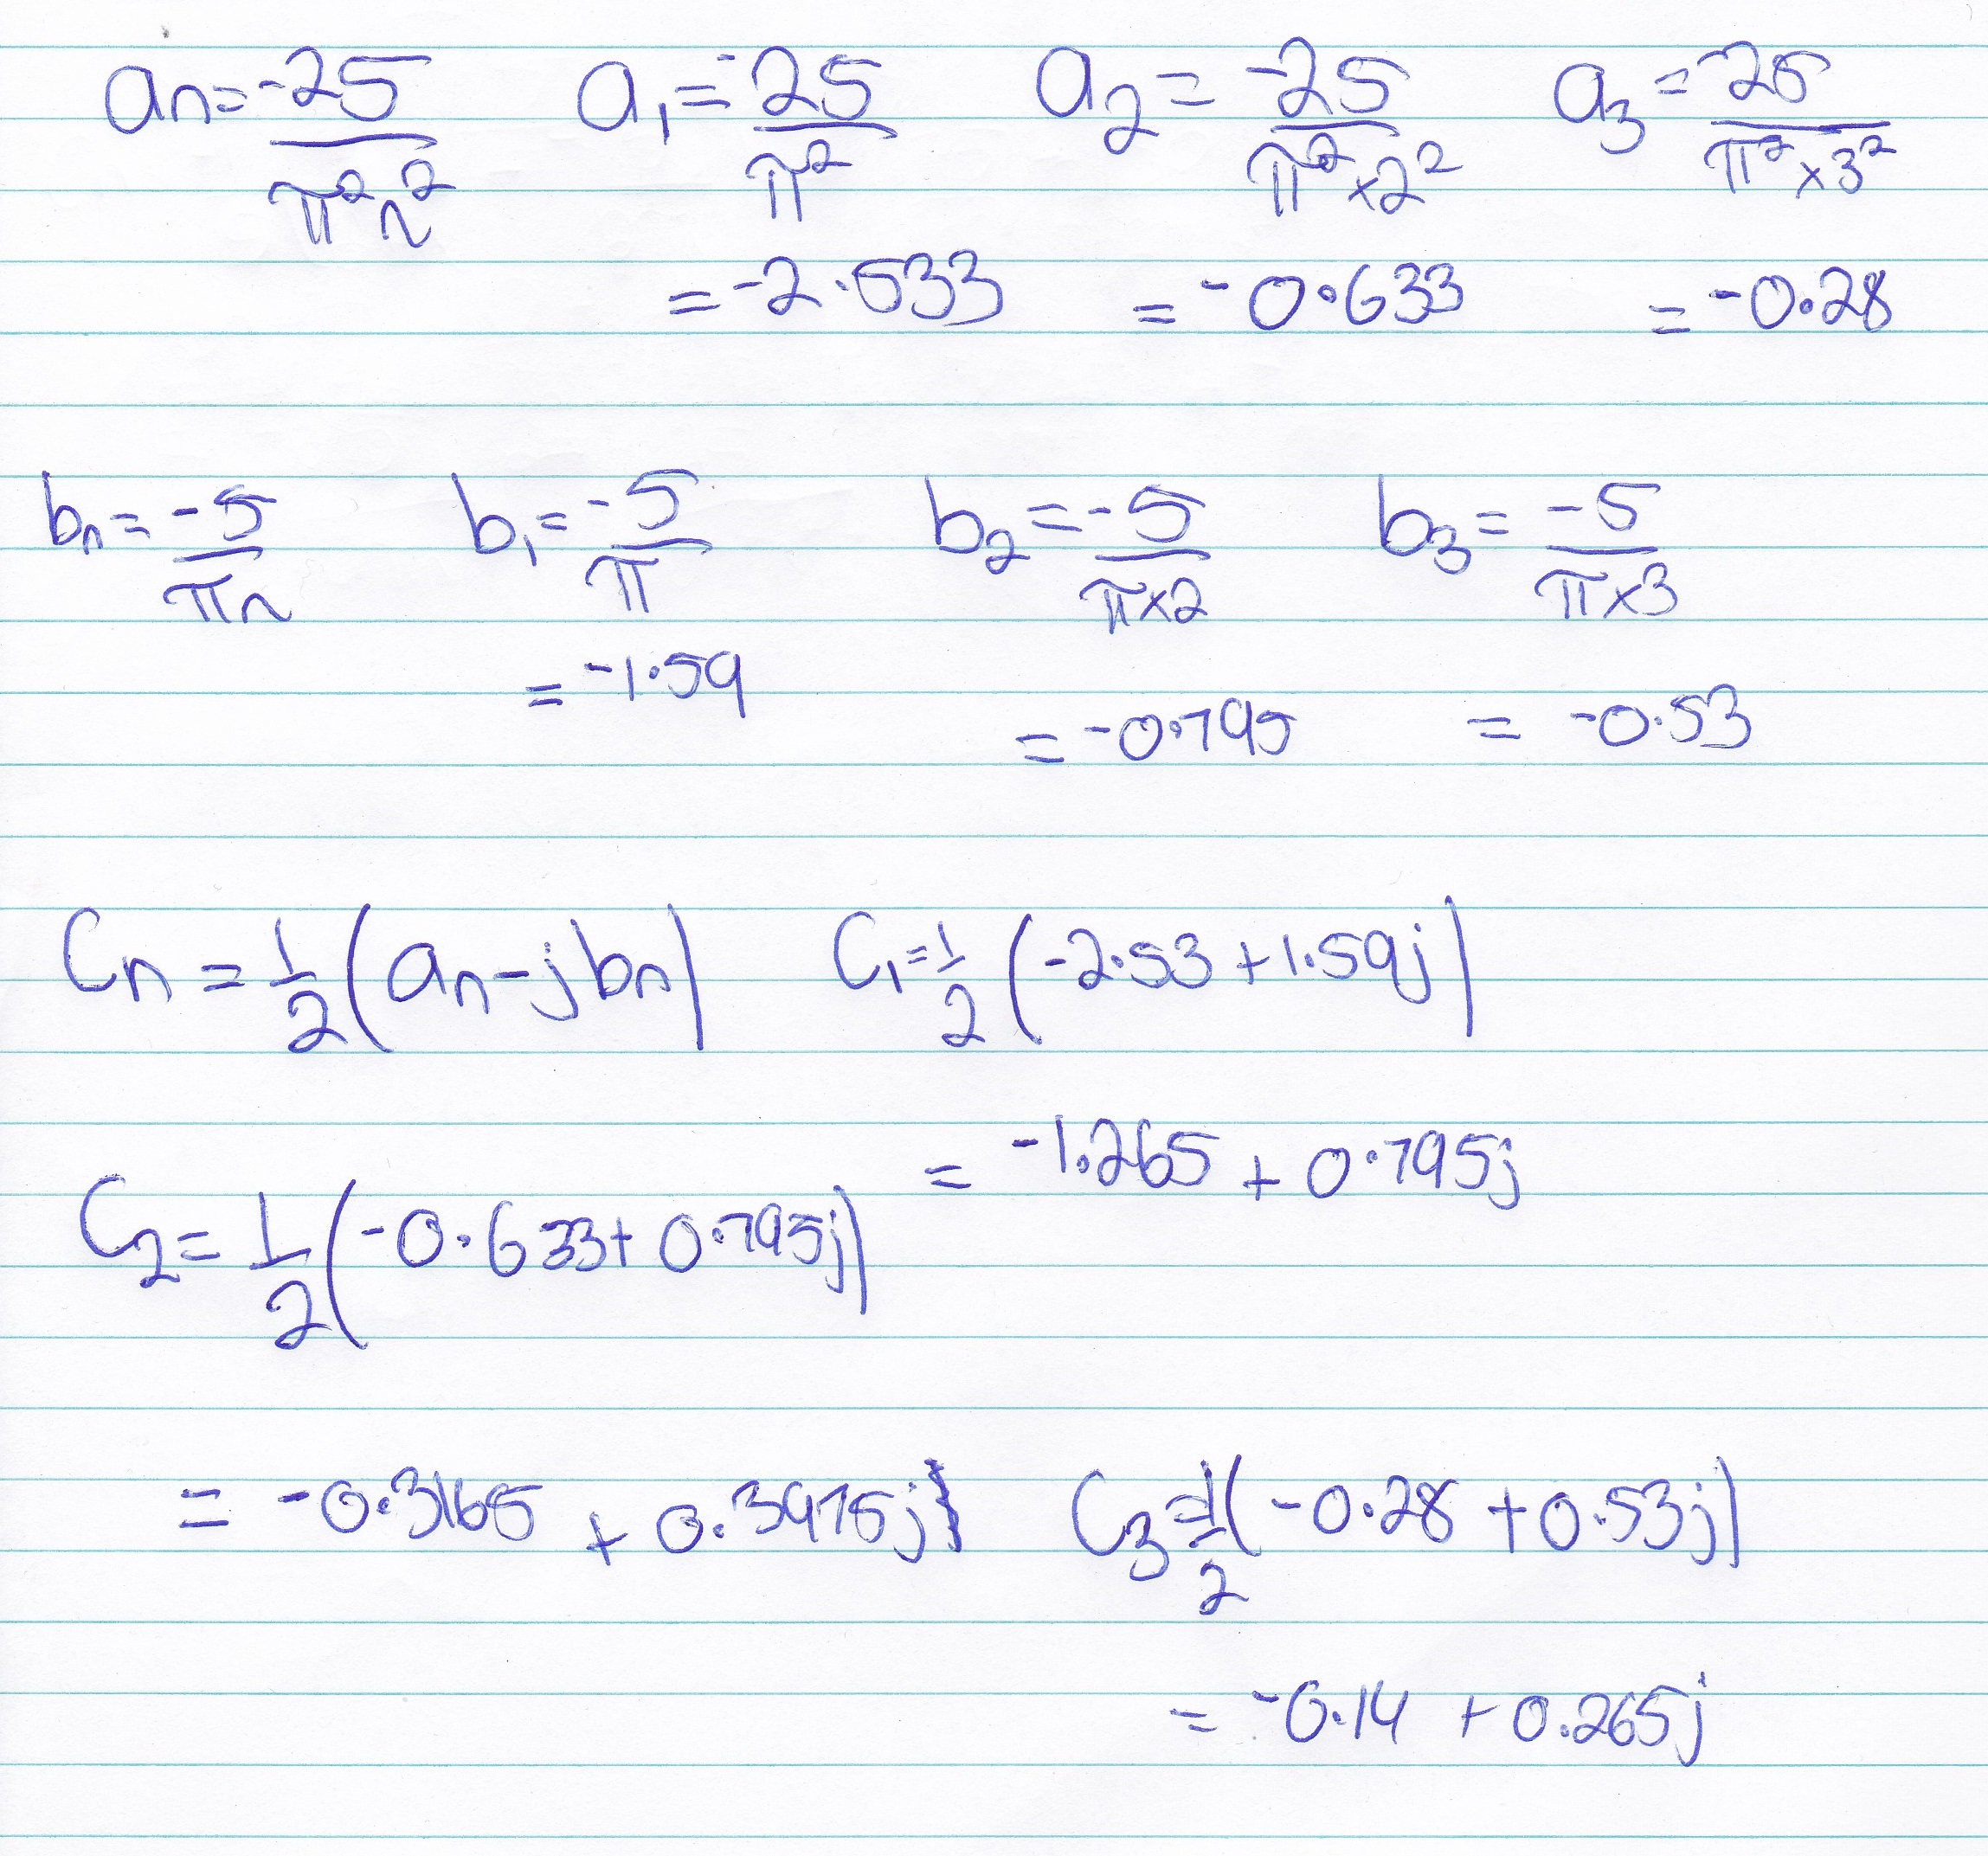 an = -25/π²n²   a₁ = -25/π²   a₂ = -25/π²×2²   a₃ = -25/π²×3²
= -2.533   = -0.633   = -0.28
bn = -5/πn   b₁ = -5/π   b₂ = -5/π×2   b₃ = -5/π×3
= -1.59   = -0.795   = -0.53
Cn = 1/2 (an - jbn)   C₁ = 1/2 (-2.53 + 1.59j)
= -1.265 + 0.795j
C₂ = 1/2 (-0.633 + 0.795j)
= -0.3165 + 0.3975j   C₃ = 1/2 (-0.28 + 0.53j)
= -0.14 + 0.265j